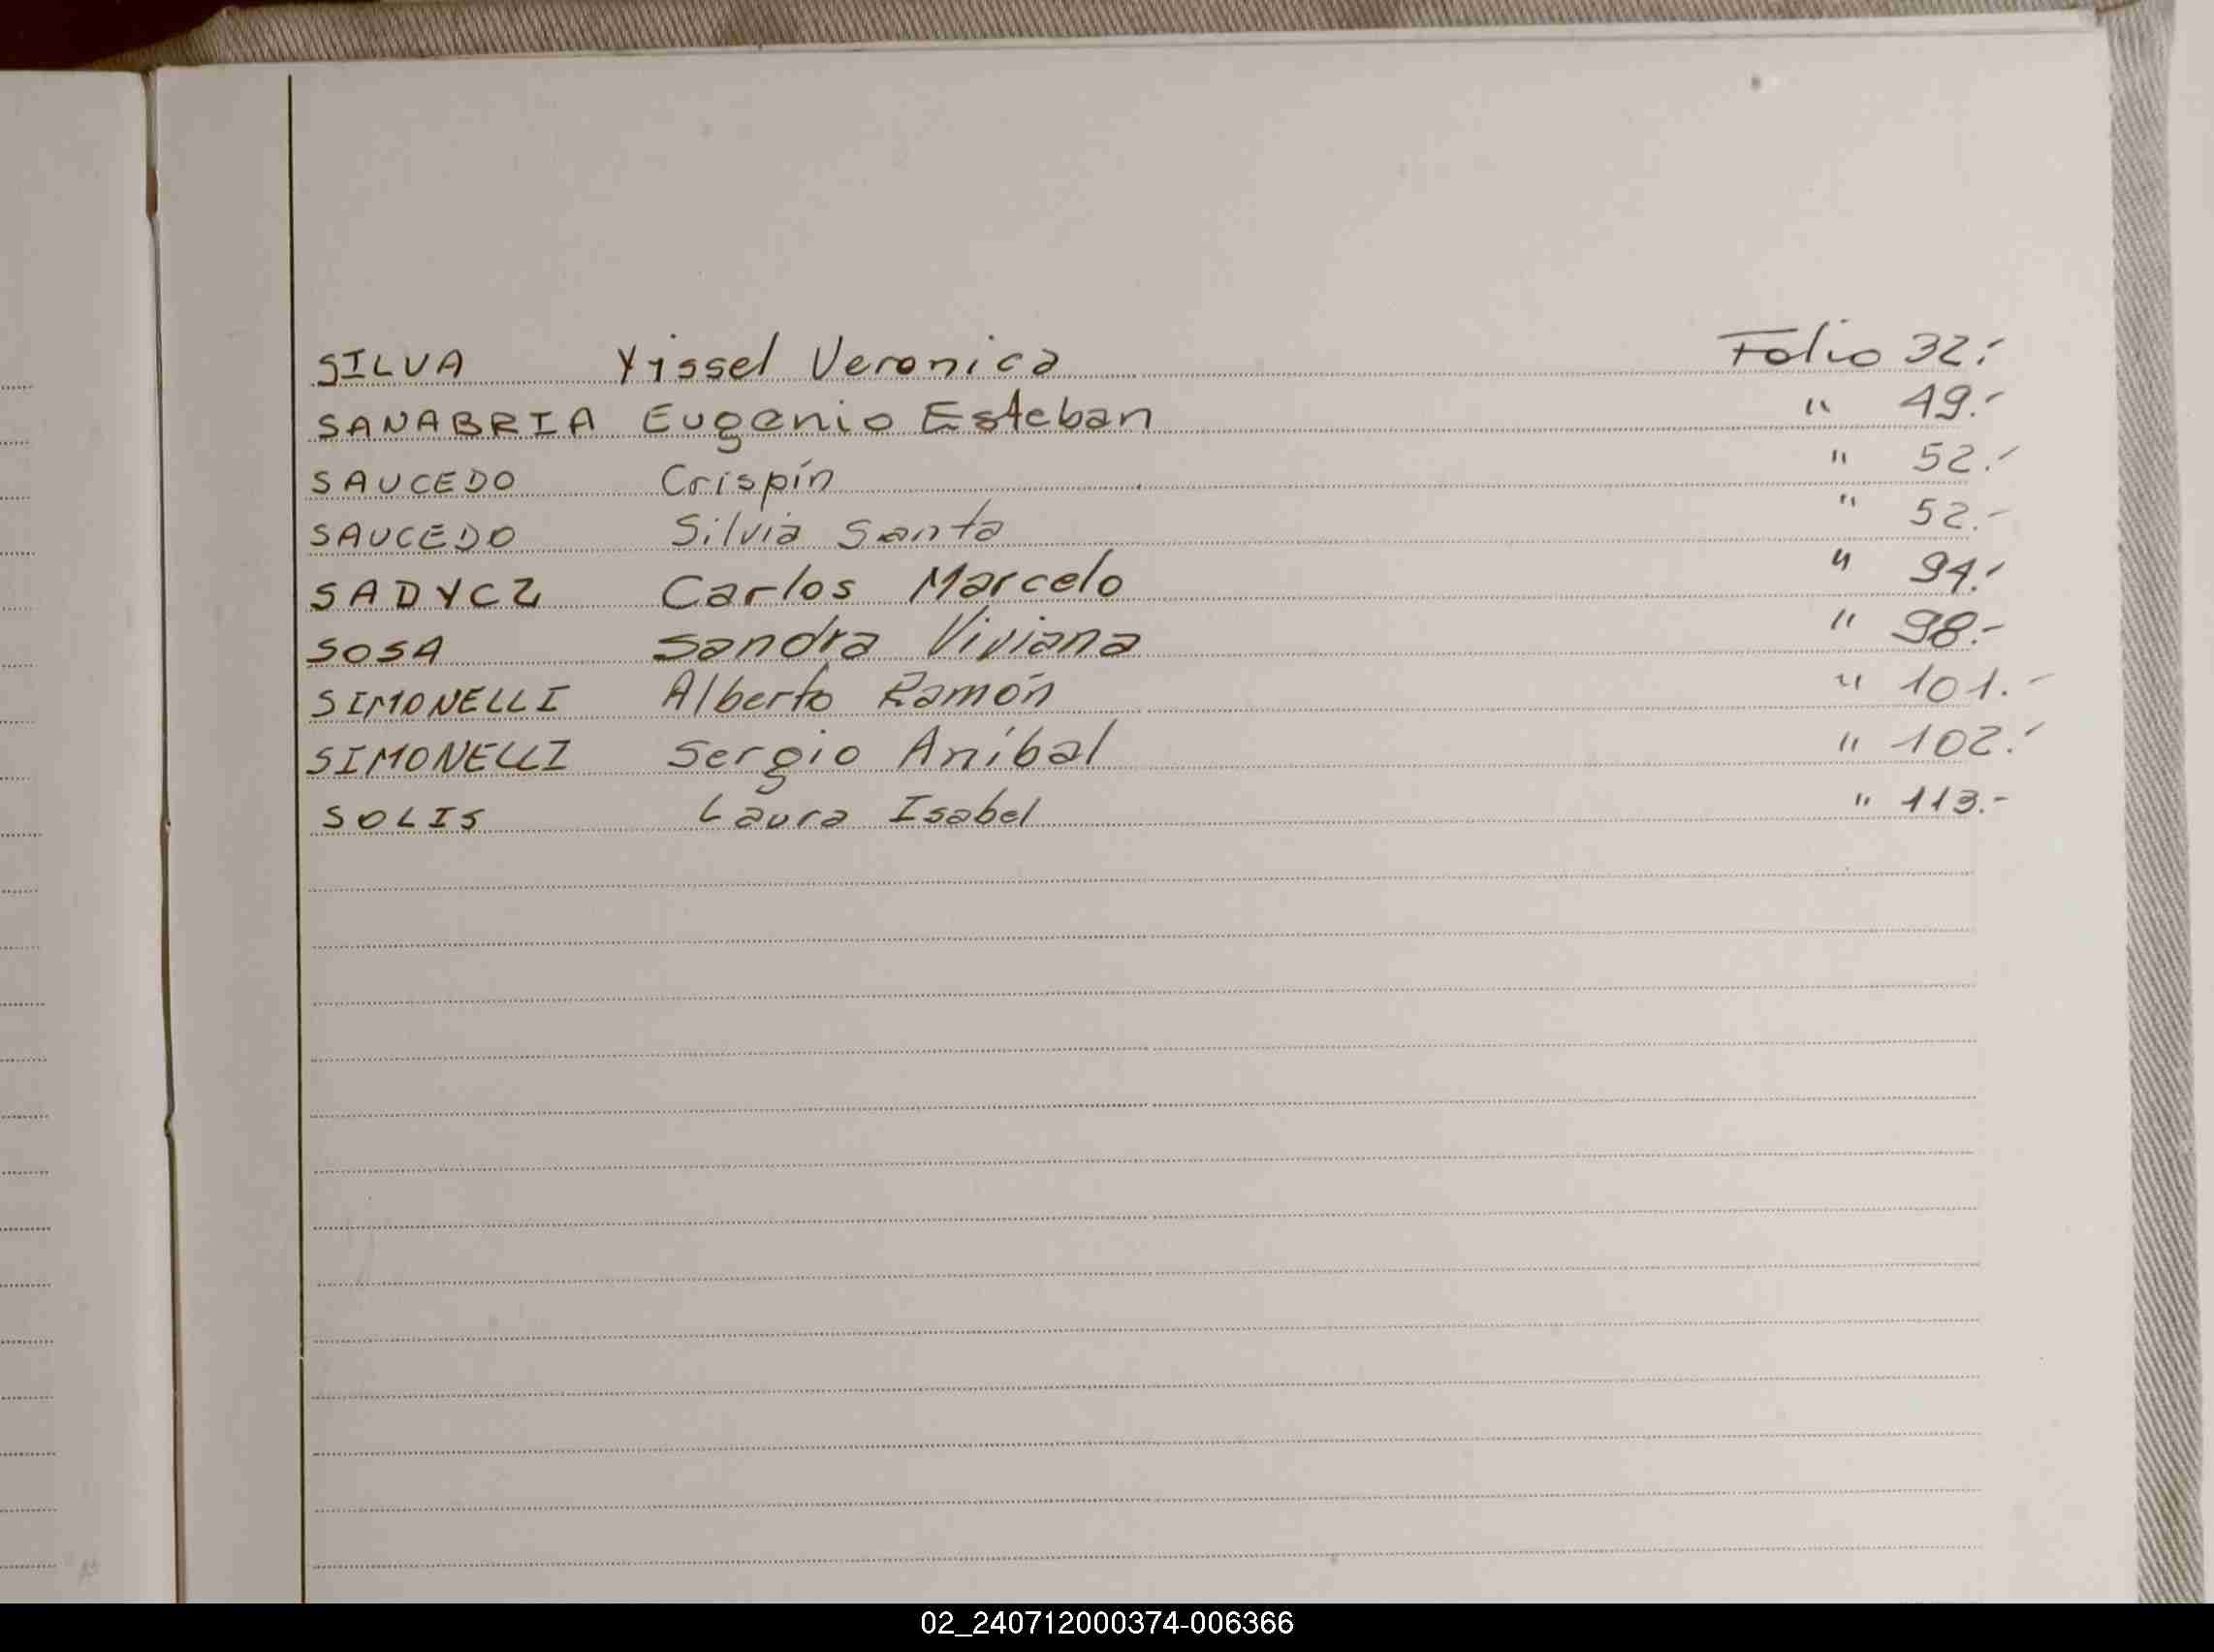 SILVA Yissel Veronica Folio 32.-
SANABRIA Eugenio Esteban " 49.-
SAUCEDO Crispín " 52.-
SAUCEDO Silvia Santa " 52.-
SADYCZ Carlos Marcelo " 94.-
SOSA Sandra Viviana " 98.-
SIMONELLI Alberto Ramón " 101.-
SIMONELLI Sergio Aníbal " 102.-
SOLIS Laura Isabel " 113.-
02_240712000374-006366